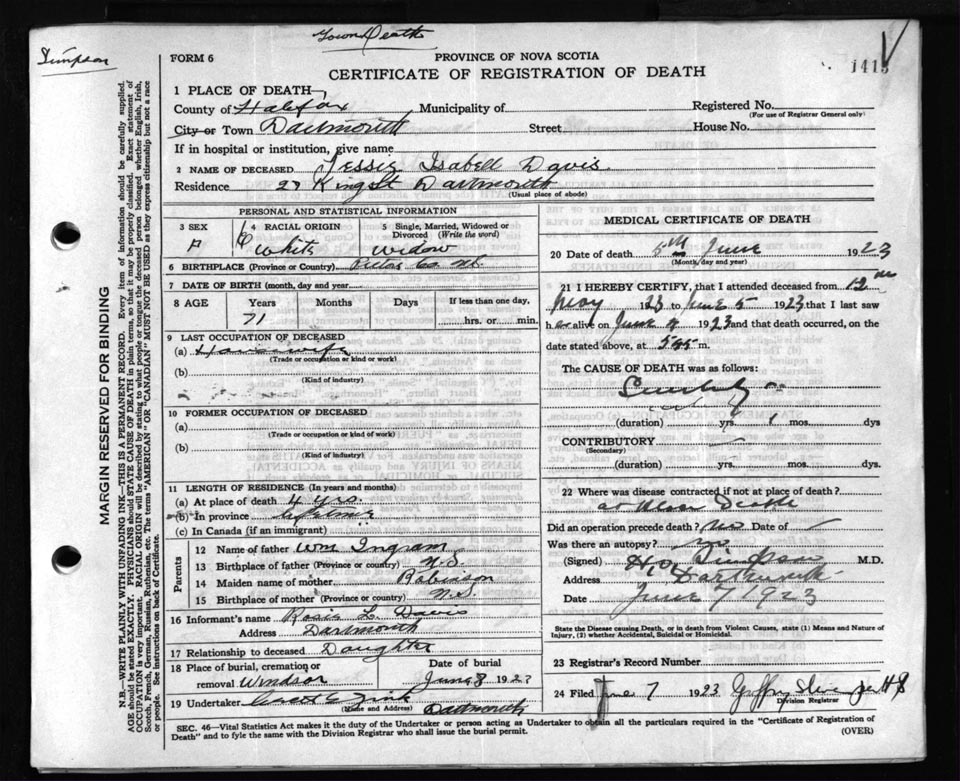 Town Death
Simpson
FORM 6
PROVINCE OF NOVA SCOTIA
CERTIFICATE OF REGISTRATION OF DEATH
1 PLACE OF DEATH
County of Halifax Municipality of Registered No.
(For use of Registrar General only)
City or Town Dartmouth Street House No.
If in hospital or institution, give name
2 NAME OF DECEASED Jessie Isabell Davis
Residence 27 King St Dartmouth
(Usual place of abode)
PERSONAL AND STATISTICAL INFORMATION
3 SEX 4 RACIAL ORIGIN 5 Single, Married, Widowed or Divorced (Write the word)
F White Widow
6 BIRTHPLACE (Province or Country) Pictou Co. N.S.
7 DATE OF BIRTH (month, day and year)
8 AGE Years Months Days If less than one day,
71 hrs. or min.
9 LAST OCCUPATION OF DECEASED
(a) Housewife
(Trade or occupation or kind or work)
(b)
(Kind of industry)
10 FORMER OCCUPATION OF DECEASED
(a)
(Trade or occupation or kind of work)
(b)
(Kind of industry)
11 LENGTH OF RESIDENCE (In years and months)
(a) At place of death 4 yrs.
(b) In province Lifetime
(c) In Canada (if an immigrant)
Parents
12 Name of father Wm Ingram
13 Birthplace of father (Province or country) N.S.
14 Maiden name of mother Robinson
15 Birthplace of mother (Province or country) N.S.
16 Informant's name Rosie L. Davis
Address Dartmouth
17 Relationship to deceased Daughter
18 Place of burial, cremation or removal Windsor Date of burial June 8 1923
19 Undertaker
(Name and Address) Dartmouth
MEDICAL CERTIFICATE OF DEATH
20 Date of death 5th June 1923
(Month, day and year)
21 I HEREBY CERTIFY, that I attended deceased from 12
May 1923 to June 5 1923 that I last saw
her alive on June 1923 and that death occurred, on
the date stated above, at m.
The CAUSE OF DEATH was as follows:
(duration) yrs. 1 mos. dys
CONTRIBUTORY
(Secondary)
(duration) yrs. mos. dys
22 Where was disease contracted if not at place of death?
at place Death
Did an operation precede death? No Date of
Was there an autopsy? no
(Signed) Simpson M.D.
Address Dartmouth
Date June 7 1923
State the Disease causing Death, or in death from Violent Causes, state (1) Means and Nature of Injury, (2) whether Accidental, Suicidal or Homicidal.
23 Registrar's Record Number
24 Filed June 7 1923
Division Registrar
SEC. 46—Vital Statistics Act makes it the duty of the Undertaker or person acting as Undertaker to obtain all the particulars required in the "Certificate of Registration of
Death" and to fyle the same with the Division Registrar who shall issue the burial permit. (OVER)
MARGIN RESERVED FOR BINDING
N.B.—WRITE PLAINLY WITH UNFADING INK—THIS IS A PERMANENT RECORD. Every item of information should be carefully supplied.
AGE should be stated EXACTLY. PHYSICIANS should STATE CAUSE OF DEATH in plain terms, so that it may be properly classified. Exact statement of
OCCUPATION is very important. RACIAL ORIGIN will be described by stating to what people or tongue the deceased person belonged whether English, Irish,
Scotch, French, German, Russian, Ruthenian, etc. The terms "AMERICAN" or "CANADIAN" MUST NOT BE USED as they express citizenship but not a race
or people. See instructions on back of Certificate.